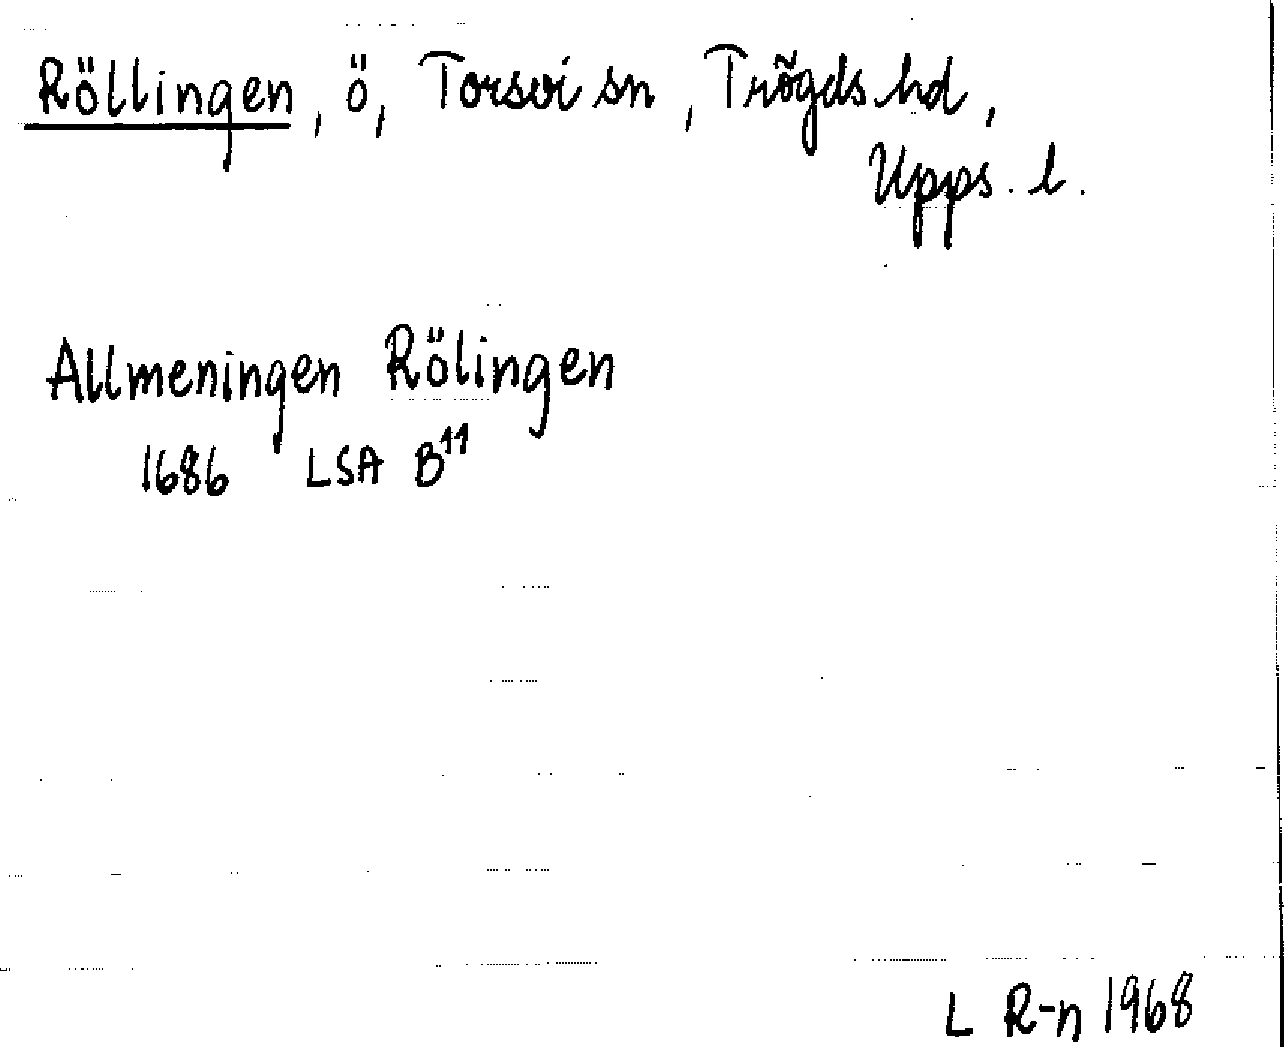 Röllingen, ö, Torsvi sn, Trögds hd,
Upps. l.
Allmeningen Rölingen
1686 LSA B¹¹
L R-n 1968